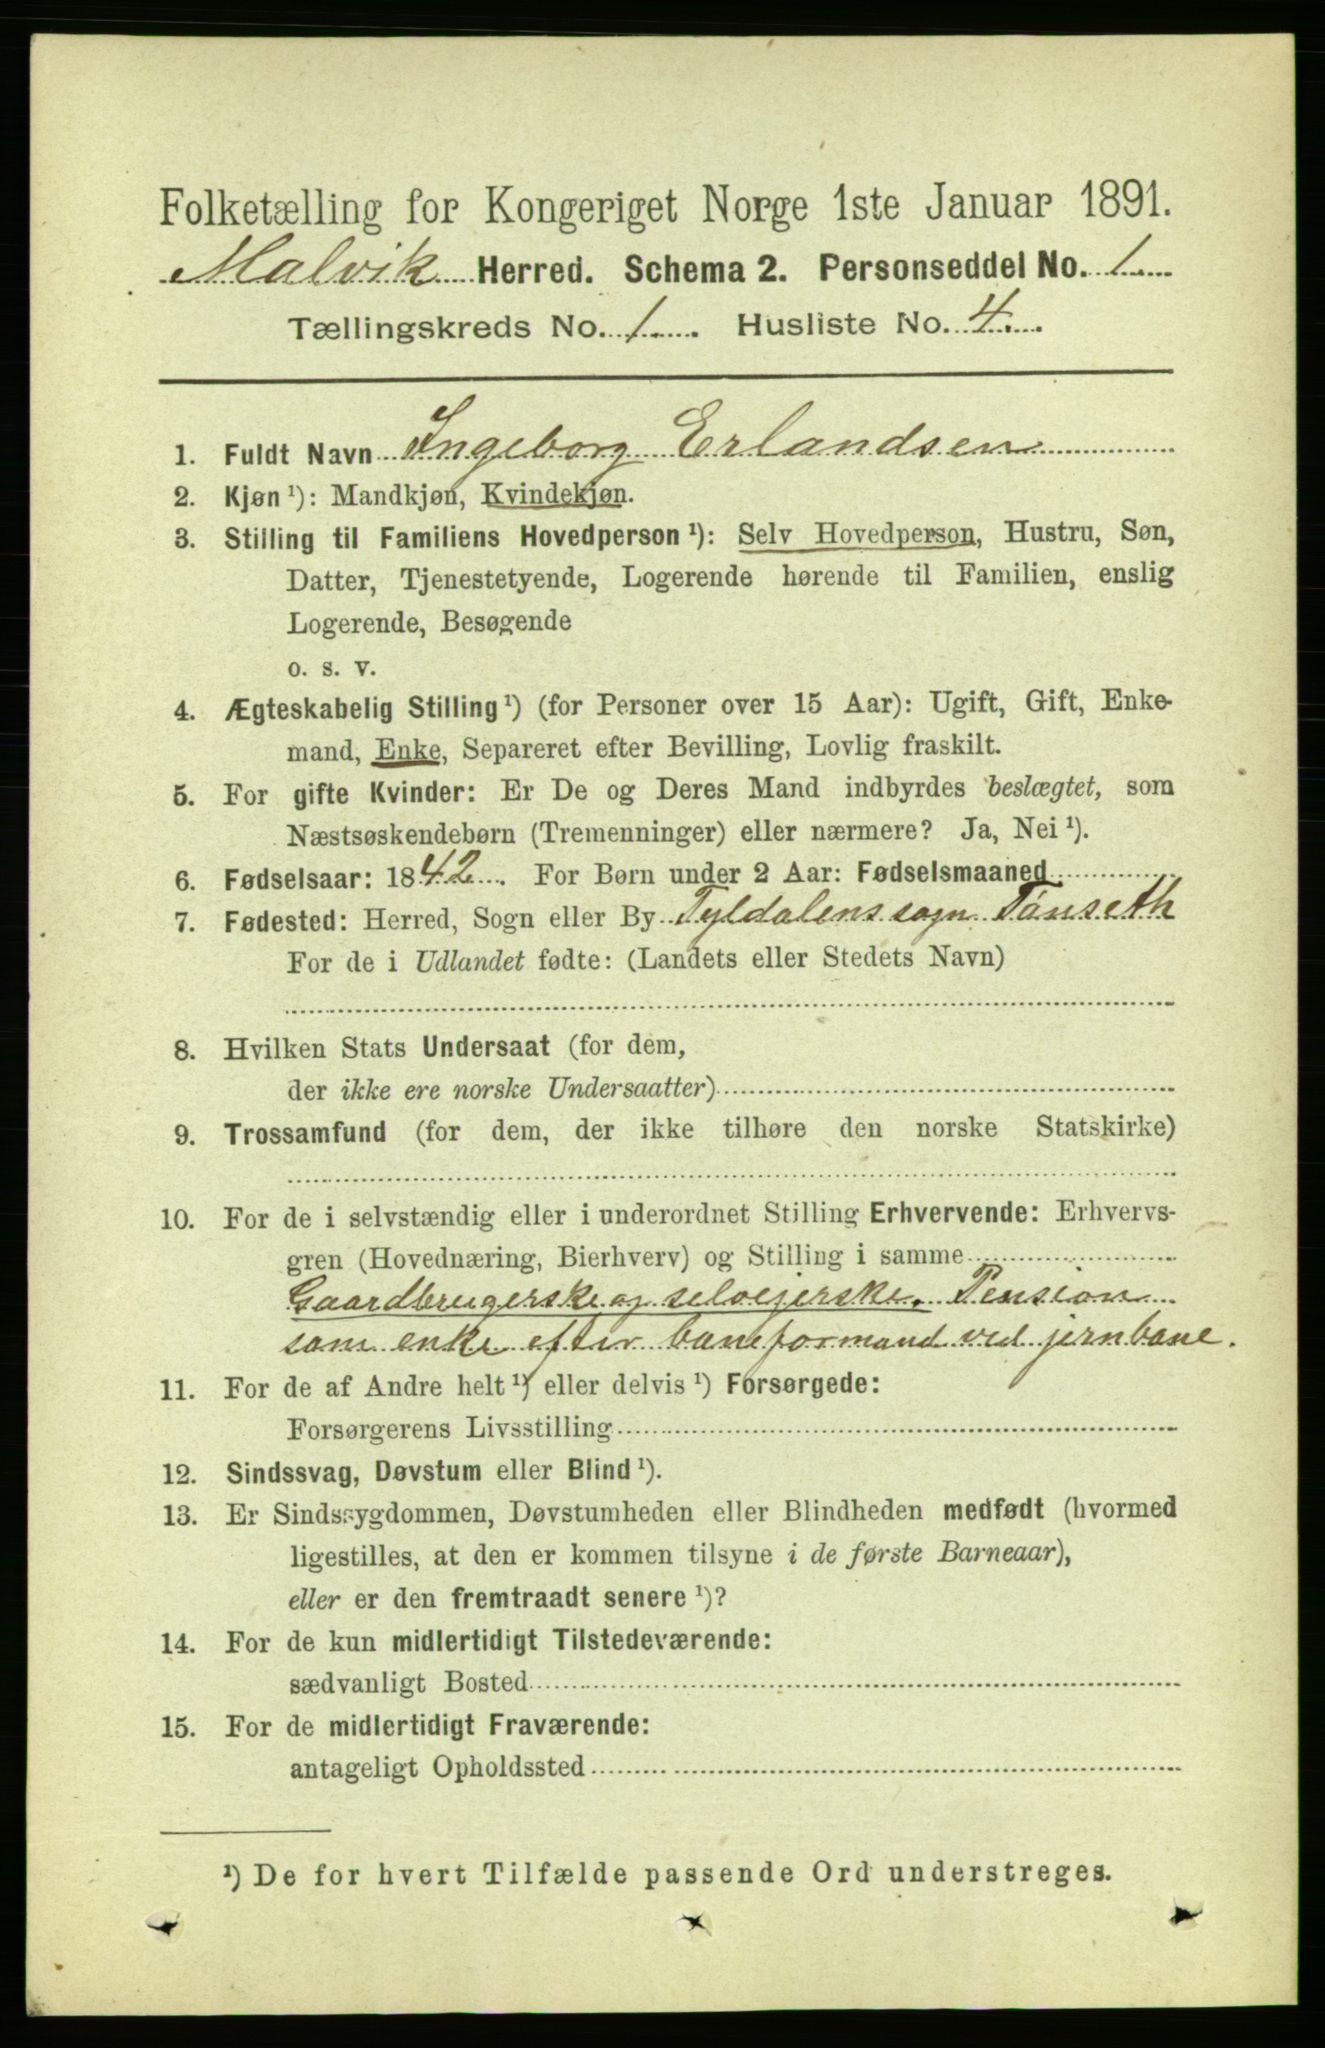 Folketælling for Kongeriget Norge 1ste Januar 1891.
Malvik Herred. Schema 2. Personseddel No. 1
Tællingskreds No. 1. Husliste No. 4.
1. Fuldt Navn Ingeborg Erlandsen
2. Kjøn ¹): Mandkjøn, Kvindekjøn.
3. Stilling til Familiens Hovedperson ¹): Selv Hovedperson, Hustru, Søn,
Datter, Tjenestetyende, Logerende hørende til Familien, enslig
Logerende, Besøgende
o. s. v.
4. Ægteskabelig Stilling ¹) (for Personer over 15 Aar): Ugift, Gift, Enke-
mand, Enke, Separeret efter Bevilling, Lovlig fraskilt.
5. For gifte Kvinder: Er De og Deres Mand indbyrdes beslægtet, som
Næstsøskendebørn (Tremenninger) eller nærmere? Ja, Nei ¹).
6. Fødselsaar: 1842. For Børn under 2 Aar: Fødselsmaaned
7. Fødested: Herred, Sogn eller By Tyldalens sogn Tønseth
For de i Udlandet fødte: (Landets eller Stedets Navn)
8. Hvilken Stats Undersaat (for dem,
der ikke ere norske Undersaatter)
9. Trossamfund (for dem, der ikke tilhøre den norske Statskirke)
10. For de i selvstændig eller i underordnet Stilling Erhvervende: Erhvervs-
gren (Hovednæring, Bierhverv) og Stilling i samme
Gaardbrugerske og selvejerske. Pension
som enke efter baneformand ved jernbane.
11. For de af Andre helt ¹) eller delvis ¹) Forsørgede:
Forsørgerens Livsstilling
12. Sindssvag, Døvstum eller Blind ¹).
13. Er Sindssygdommen, Døvstumheden eller Blindheden medfødt (hvormed
ligestilles, at den er kommen tilsyne i de første Barneaar),
eller er den fremtraadt senere ¹)?
14. For de kun midlertidigt Tilstedeværende:
sædvanligt Bosted
15. For de midlertidigt Fraværende:
antageligt Opholdssted
¹) De for hvert Tilfælde passende Ord understreges.